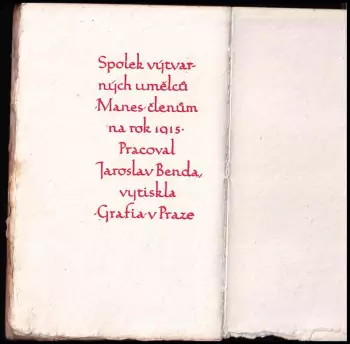 Spolek výtvar-
ných umělců
·Manes· členům
na rok 1915·
Pracoval
Jaroslav Benda,
vytiskla
·Grafia· v Praze